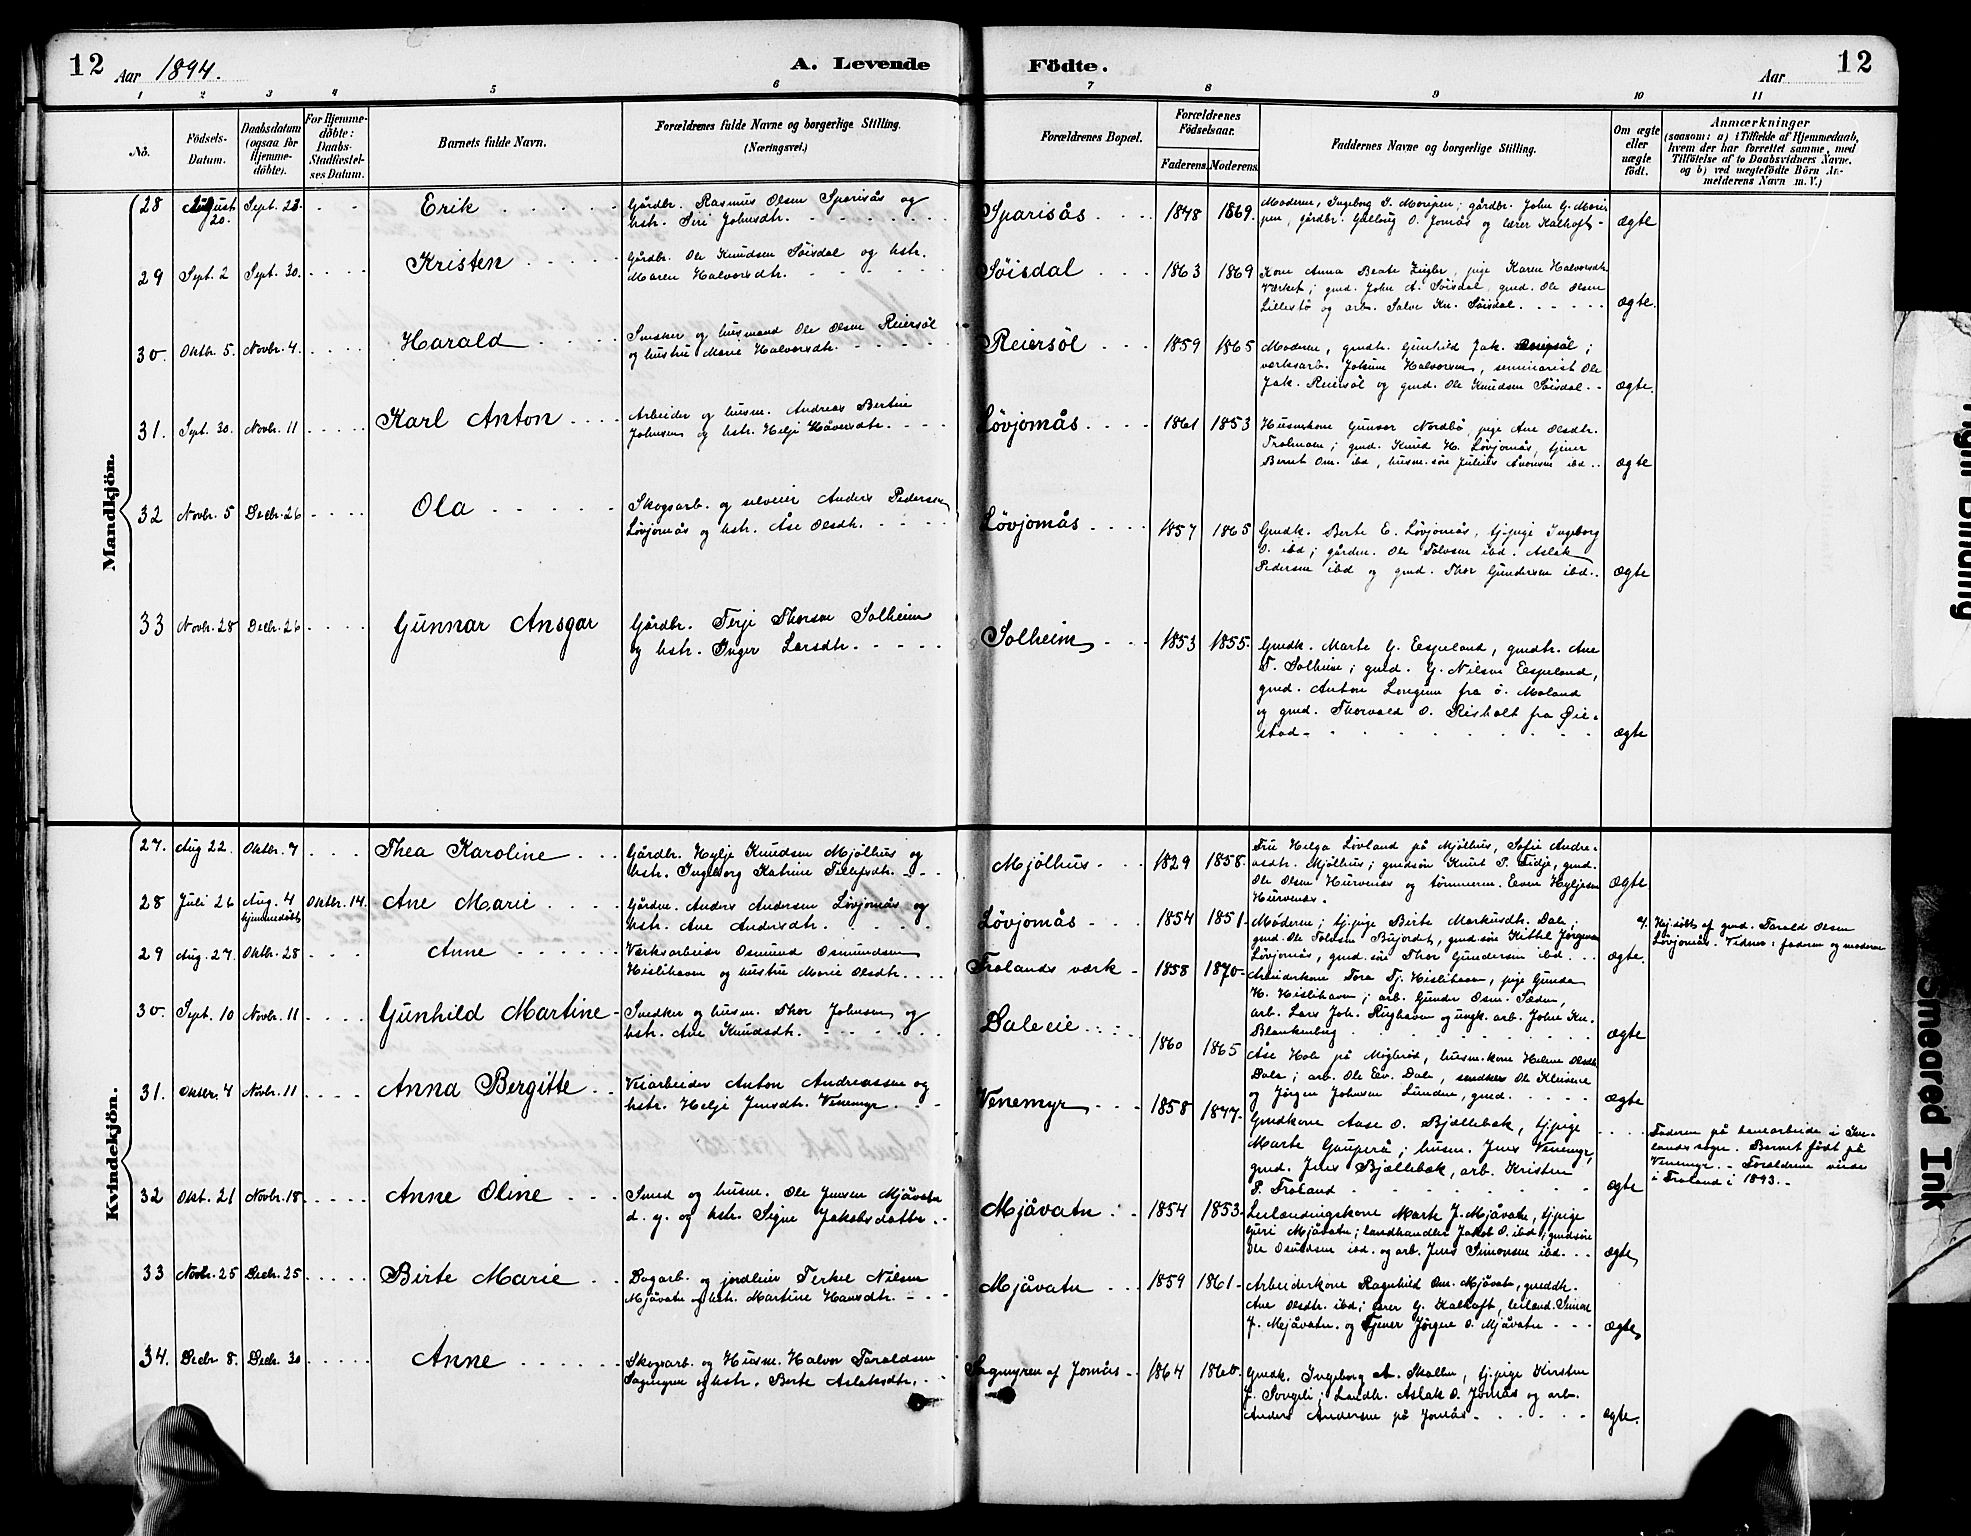 12 Aar 1894. A. Levende Födte. Aar 12
1 2 3 4 5 6 7 8 9 10 11
No.
Födsels-Datum.
Daabsdatum (ogsaa for Hjemme-döbte).
For Hjemme-döbte: Daabs-Stadfæstel-ses Datum.
Barnets fulde Navn.
Forældrenes fulde Navne og borgerlige Stilling.
(Næringsvei.)
Forældrenes Bopæl.
Forældrenes Födselsaar.
Faderens. Moderens.
Faddernes Navne og borgerlige Stilling.
Om ægte eller uægte födt.
Anmærkninger
(saasom: a) i Tilfælde af Hjemmedaab,
hvem der har forrettet samme, med
Tilföielse af to Daabsvidners Navne.
og b) ved uægtefödte Börn An-
melderens Navn m. V.)
Mandkjön.
28 August 20. Sept. 23 Erik
Gårdbr. Rasmus Olsen Sparisås og
hstr. Siri Johnsdtr.
Sparisås 1848 1869.
Moderen, Ingeborg
gårdbr. O. Jomås og lærer Kalhoft
ægte
29 Sept. 2 Sept. 30. Kristen
Gårdbr. Ole Knudsen Söisdal og hstr.
Maren Halvorsdtr.
Söisdal 1863 1869
Kone Anna Beate pige Karen Halvorsdtr.
Værket; gmd. John A. Söisdal, gmd. Ole Olsen
og arb. Salve Kn. Söisdal.
ægte.
30. Oktbr. 5. Novbr. 4. Harald
Snedker og husmand Ole Olsen Reiersöl
og hustru Marie Halvorsdtr.
Reiersöl 1859 1865
Moderen, gmdtr. Gunhild Jak.
værksarb. Johann Halvorsen, seminarist Ole
Jak. Reiersöl og gmd. Ole Knudsen Söisdal
ægte
31. Sept. 30. Novbr. 11 Karl Anton
Arbeider og husm. Andreas Bertin
Johnsen og hstr. Helje Håversdtr.
Lövjomås 1861 1853
Husmkone Gunvor Nordbö, pige Ane Olsdtr.
gmd. Knud H. Lövjomås, tjener
Bernt Om. ibd, husm. sön Julius ibd.
ægte
32 Novbr. 5 Decbr. 26 Ola
Skogsarb. og selveier Anders Pedersen
Lövjomås og hstr. Åse Olsdtr.
Lövjomås 1857 1865
Gmdk. Berte E. Lövjomås, tj. pige Ingeborg
O. ibd; gårdm. Ole Tolvsen ibd. Aslak
Pedersen ibd og gmd. Thor Gundersen ibd.
ægte
33 Novbr. 28 Decbr. 26 Gunnar Ansgar
Gårdbr. Terje Thorsen Solheim
og hstr. Inger Larsdtr.
Solheim 1853 1855.
Gmdk. Marte G. Espeland, gmdtr. Ane
T. Solheim; gmd. G. Nilsen Espeland,
gmd. Anton fra ö. Moland
og gmd. Thorvald O. Risholt fra Öie-
stad
ægte
Kvindekjön.
27. Aug 22. Oktbr. 7 Thea Karoline
Gårdbr. Hylje Knudsen Mjölhus og
hstr. Ingeborg Katrine Tellefsdtr.
Mjölhus 1829 1858.
Fru Helga Lövland på Mjölhus, Sofie Andre-
asdtr. Mjölhus; gmdsön Knut T. Tidje, gmd.
Ole Olsen Hurvenes og tömmerm. Even Hyljesen
Hurvenes.
ægte
28 Juli 26 Aug. 4 hjemmedöbt Oktbr. 14. Ane Marie
Gårdm. Anders Andersen Lövjomås og
hstr. Ane Andersdtr.
Lövjomås 1854 1851.
Moderen; tj. pige Birte Markusdtr. Dale;
gmd. Ole Tolvsen Bujordet, gmd. sön Kittel Jörgensen
Lövjomås, gmd. sön Thor Gundersen ibd.
ægte.
Hj. döbt af gmd. Tarald Olsen
Lövjomås. Vidner: faderen og moderen
29 Aug. 27. Oktbr. 28 Anne
Værksarbeider Osmund Osmundsen
Hislihaven og hustru Marie Olsdtr.
Frolands værk 1858 1870
Arbeiderkone Tora Tj. Hislihaven, pige Gunda
H. Hislihaven; arb. Gunder Osm.
arb. Lars Joh. Rughaven og ungk. arb. John Kn.
Blankenbug
ægte
30. Sept. 10 Novbr. 11 Gunhild Martine
Snedker og husm. Thor Johnsen og
hstr. Ane Knudsdtr.
Daleeie 1860 1865
Åse Hole på husm. kone Helene Olsdtr
Dale; arb. Ole Ev. Dale, snedker Ole
og Jörgen Johnsen gmd.
ægte
31. Oktbr. 4 Novbr. 11 Anna Bergitte
Veiarbeider Anton Andreassen og
hstr. Helje Jensdtr. Venemyr
Venemyr 1858 1877.
Gmdkone Aase O. Bjællebæk, tj. pige
Marte Gauperå; husm. Jens Venemyr,
gmd. Jens Bjællebæk, arb. Kristen
P. Froland
ægte
Faderen på banearbeide i
sogn. Barnet födt på
Venemyr. Forældrene viede
i Froland i 1893.
32 Okt. 21 Novbr. 18 Anne Oline
Smed og husm. Ole Jensen Mjåvatn
d. y. og hstr. Signe Jakobsdatter
Mjåvatn 1854 1853.
Leilændingskone Marte J. Mjåvatn, tj. pige
Guri Mjåvatn; landhandler Jakob O. ibd; gmdsön
Ole Osuldsen ibd. og arb. Jens Simonsen ibd.
ægte
33 Novbr. 25 Decbr. 25 Birte Marie
Dagarb. og jordleier Terkel Nilsen
Mjåvatn og hstr. Martine Hansdtr.
Mjåvatn 1859 1861
Arbeiderkone Ragnhild Om. Mjåvatn, gmddtr.
Ane Olsdtr. ibd; lærer G. Kalhoft, leilænd. Simon
J. Mjåvatn. og Tjener Jörgen O. Mjåvatn
ægte
34. Decbr 8. Decbr. 30 Anne
Skogsarb. og Husm. Halvor Taraldsen
Sagmyren og hstr. Berte Aslaksdtr.
Sagmyren af Jomås 1864 1860
Gmdk. Ingeborg A. Skallen, tj. pige Kirsten
J. Landh. Aslak O. Jomås og arb.
Anders Andersen på Jomås
ægte.
Tight Binding
Smeared Ink